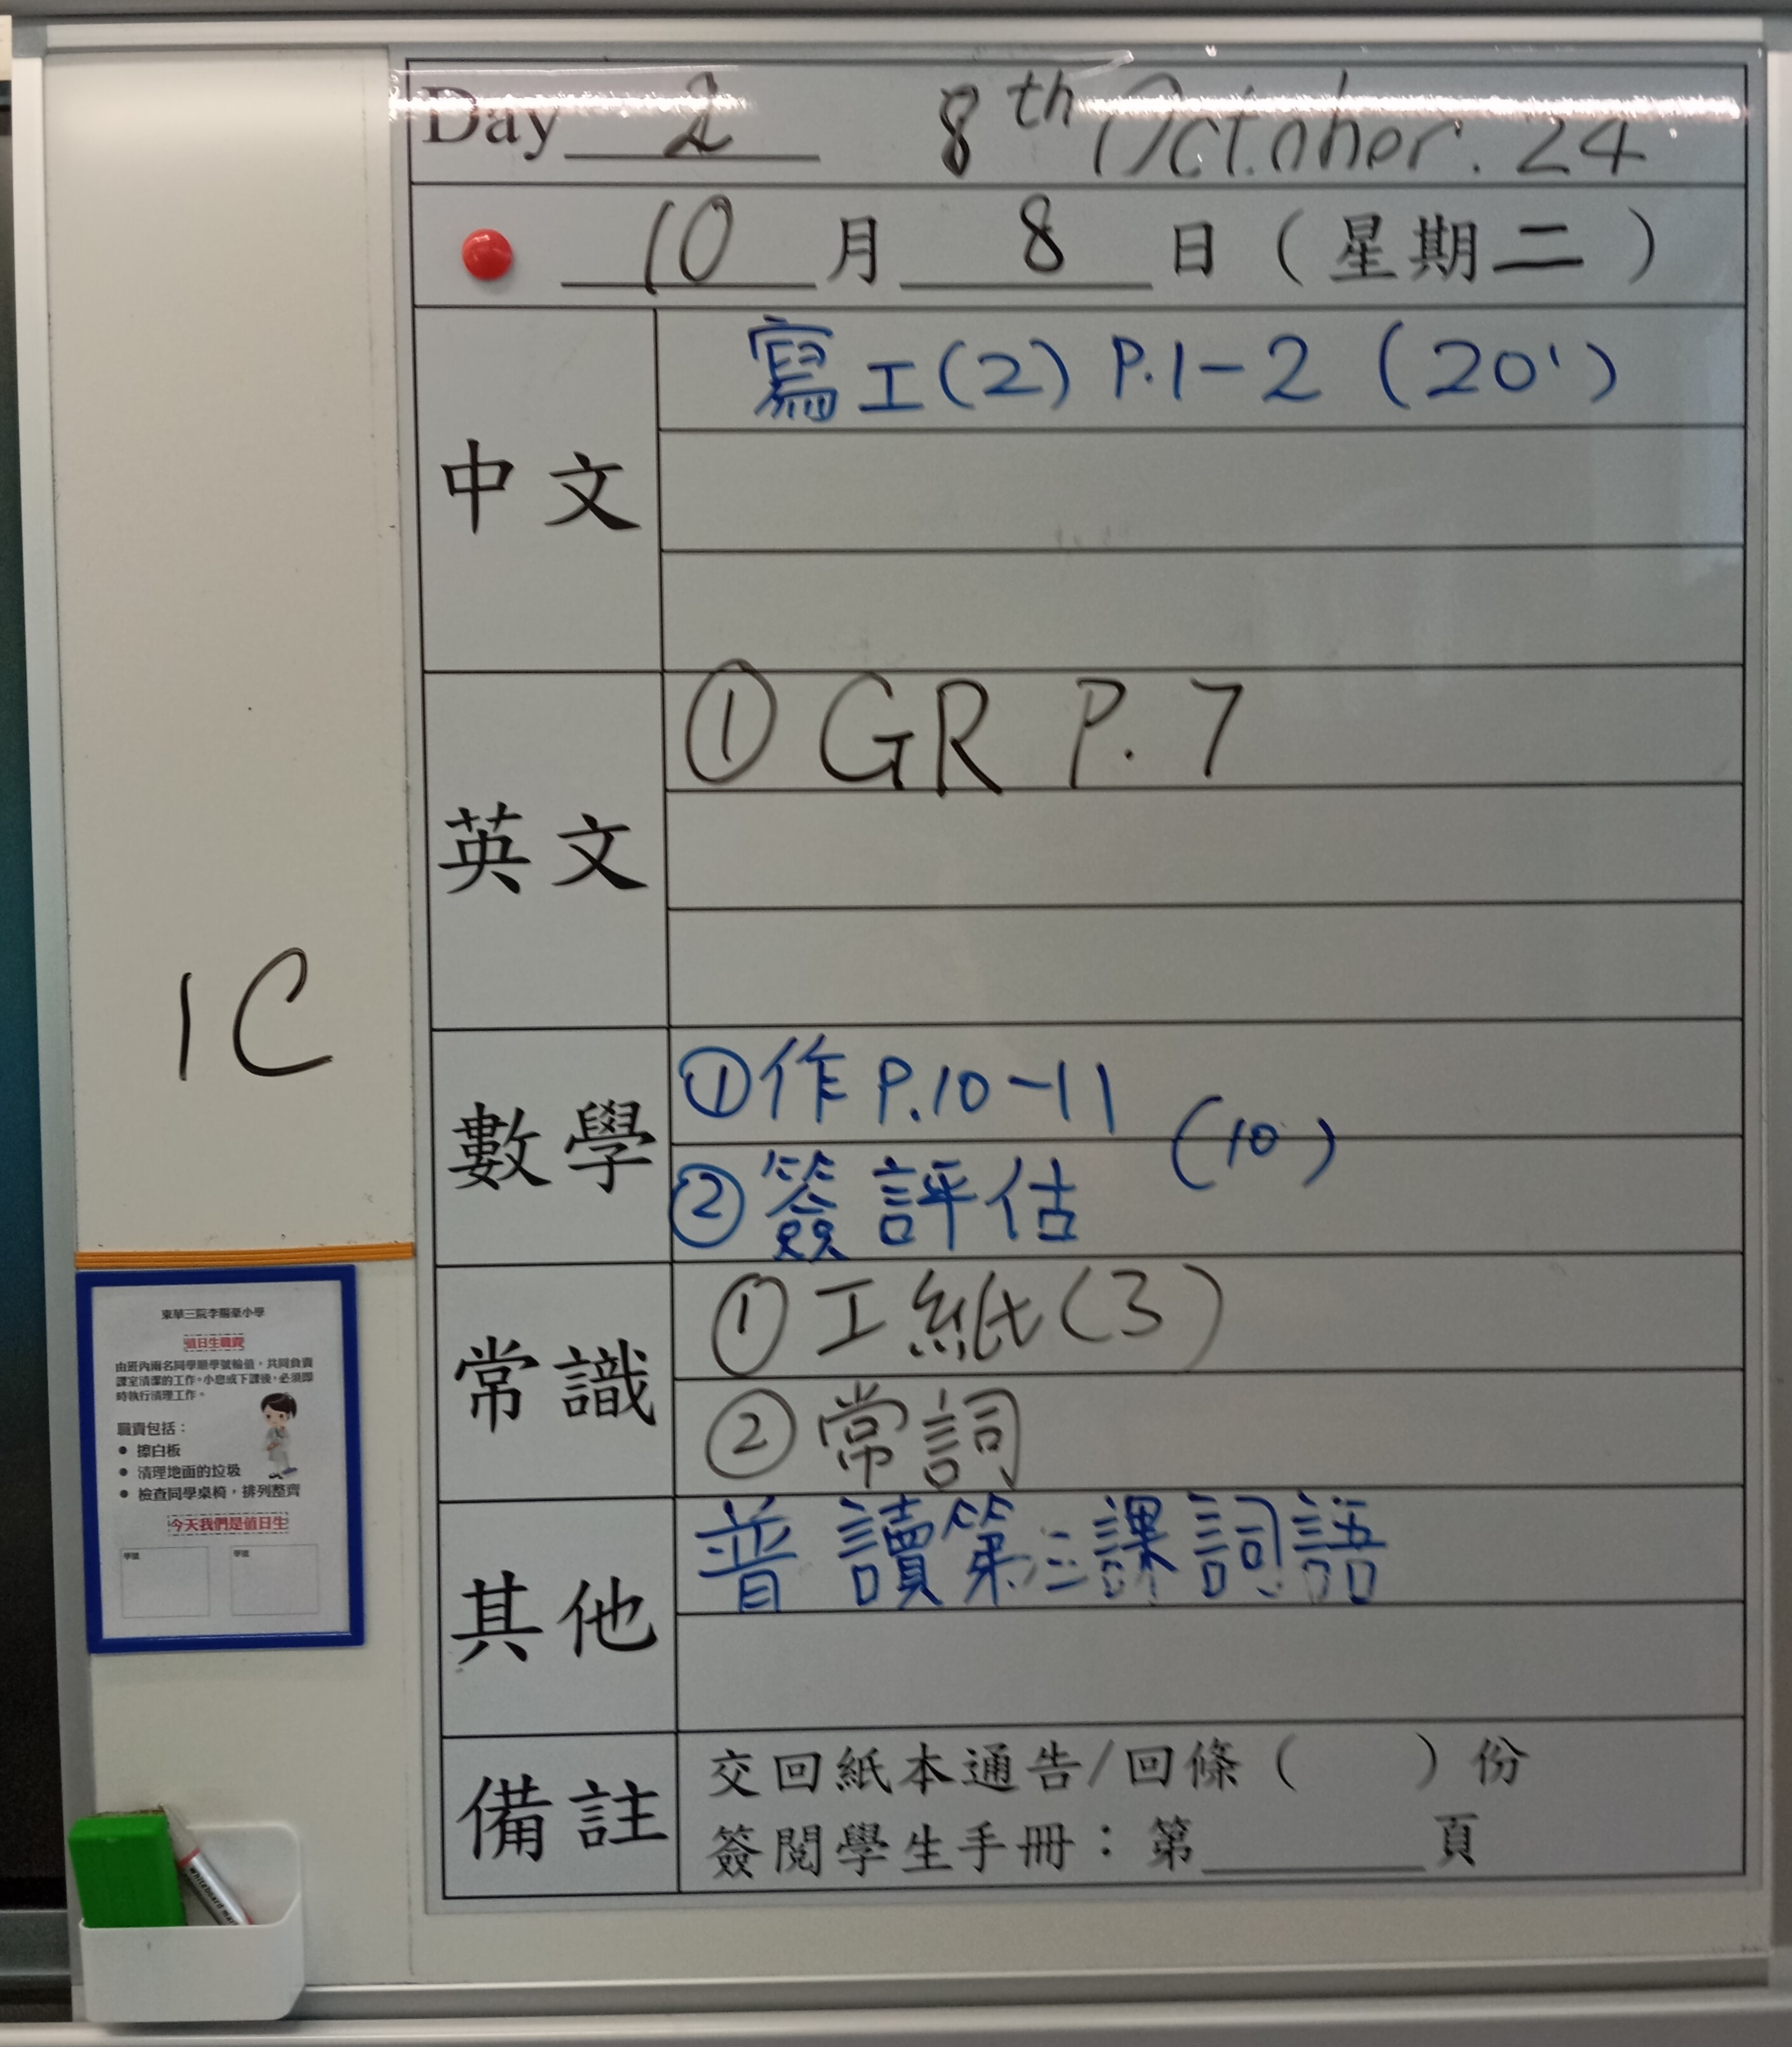 Day 2 8th October. 24
10 月 8 日 ( 星期二 )
中文
寫工(2) P.1-2 (20')
英文
① GR P.7
數學
①作 P.10-11
(10')
②簽評估
常識
①工紙(3)
②常詞
其他
普 讀第三課詞語
備註
交回紙本通告/回條 ( ) 份
簽閱學生手冊：第______頁
1C
東華三院李賜豪小學
值日生職責
由班內兩名同學順學號輪值，共同負責
課室清潔的工作。小息或下課後，必須即
時執行清理工作。
職責包括：
● 擦白板
● 清理地面的垃圾
● 檢查同學桌椅，排列整齊
今天我們是值日生
學號 學號